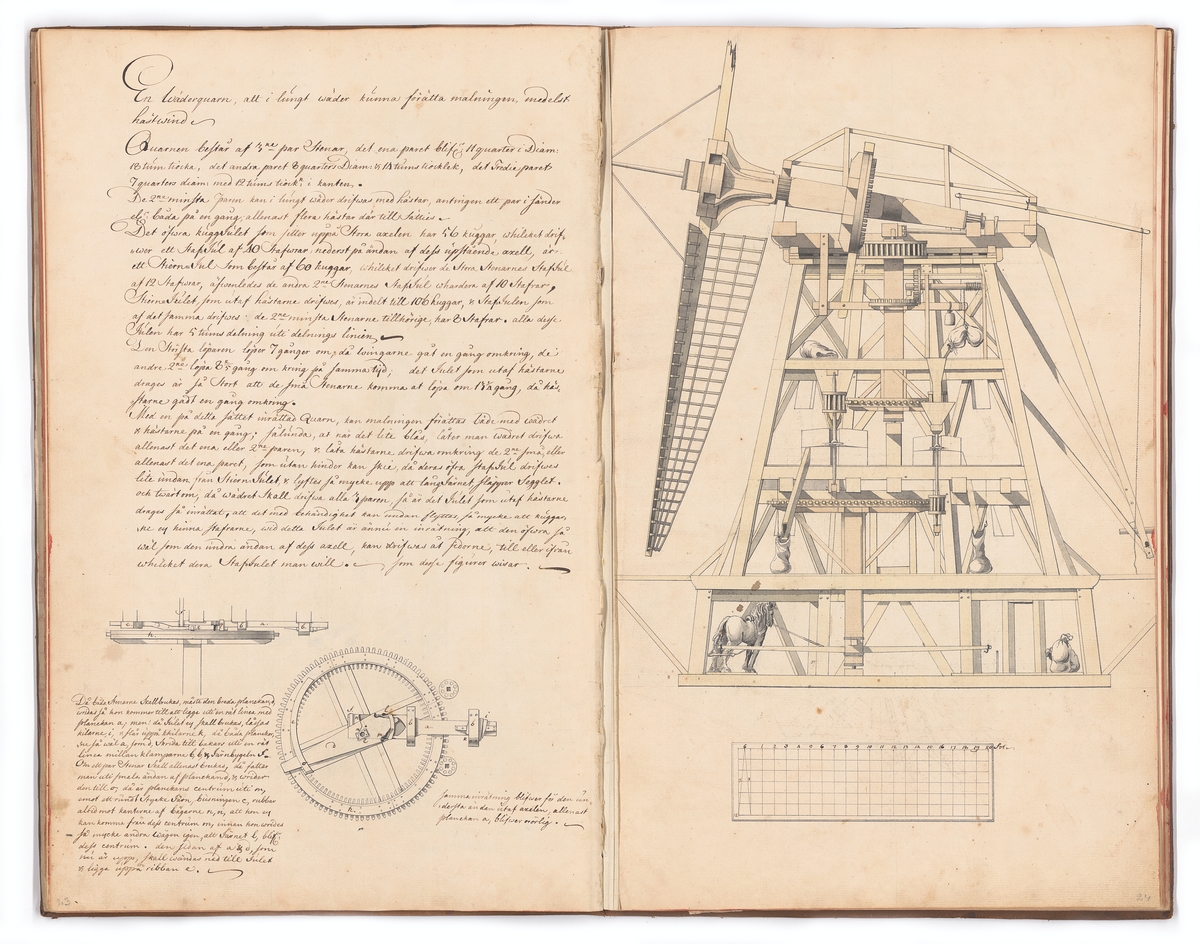 En Wäderquarn, att i lungt wäder kunna förätta malningen, medelst
hästwind
Quarnen består af 3ne par Stenar, det ena paret blif: 11 quarter i Diam:
18 tum tiocka, det andra paret 8 quarters Diam: & 14 tums tiocklek, det Tredie paret
7 quarters diam: med 12 tums tiock: i kanten,
De 2ne minsta Paren kan i lungt wäder drifwas med hästar, antingen ett par i sänder
ell: båda på en gång, allenast flera hästar där till sättes.
Det öfwra kuggJulet som sitter uppå Stora axelen har 56 kuggar, whilcket drif-
wer ett StafJul af 40 Stafwrar, nederst på ändan af dess upstående axell, är
ett StiernJul som består af 60 kuggar, whilcket drifwer de Stora Stenarnes StafJul
af 12 Stafwrar, äfwenledes de andra 2ne Stenarnes StafJul whardera af 10 Stafrar,
StiernJulet, som utaf hästarne drifwes, är indelt till 106 kuggar, & StafJulen som
af det samma drifwes de 2ne minsta Stenarne tillhörige, har 8 Stafrar. alla desse
Julen har 5 tums delning uti delnings linien.
Den Största löparen löper 7 gånger om, då wingarne gåt en gång omkring, de
andre 2ne löpa gång om kring på samma tyd; det Julet som utaf hästarne
drages är så Stort att de små Stenarne komma at löpa om gång, då häs-
starne gådt en gång omkring.
Med en på detta sättet inrättad Quarn, kan malningen förättas både med wädret
& hästarne på en gång; sålunda, at när det lite blås, låter man wädret drifwa
allenast det ena eller 2ne paren, & låta hästarne drifwa omkring de 2ne små, eller
allenast det ena paret, som utan hinder kan skie, då deras öfra StafJul drifwes
lite undan från StiernJulet & lyftes så mycke upp att langJärnet släpper Segglet.
och twertom, då wädret skall drifwa alla 3 paren, så är det Julet som utaf hästarne
drages så inrättat, att det med behändighet kan undan flyttas, så mycke att kuggar-
ne ey hinna stafrarne, wid detta Julet är ännu en inrätning, att den öfwra så
wäl som den undra ändan af dess axell, kan drifwas åt siderne, till eller ifrån
whilcket dera StafJulet man will. som desse figurer wisar.
Då både Stenarne Skall brukas, måste den breda planckan d,
wridas så hon kommer till att ligga uti en rät linea med
planckan a; men då Julet ey skall brukas, låssas
kilarne i, & slår uppå kilarne k, då båda planckor-
ne så wäl a, som d, Skrida till backars uti en rät
linea millan klamparne b, b & Järnbygeln f.
Om ett par Stenar Skall allenast brukas, då fattar
man uti smala ändan af planckan d, & wrider
den till o, då är planckens centrum uti m,
emot ett rundt Stycke Järn, busningen c, rubbar
altid mot kanterne af bågarne n, n, att hon ey
kan komma från dess centrum m, innan hon wrides
så mycke andra wägen igen, att Järnet l, blif:
dess centrum. den sidan af a & d, som
nu är upp, skall wändas ned till Julet
& ligga uppå ribban e.
Samma inrätning blifwer för den un-
dersta ändan utaf axelen, allenast
planckan a, blifwer onödig.
23
6 1 2 3 4 5 6 7 8 9 10 11 12 13 14 15 16 17 18 19 20
24